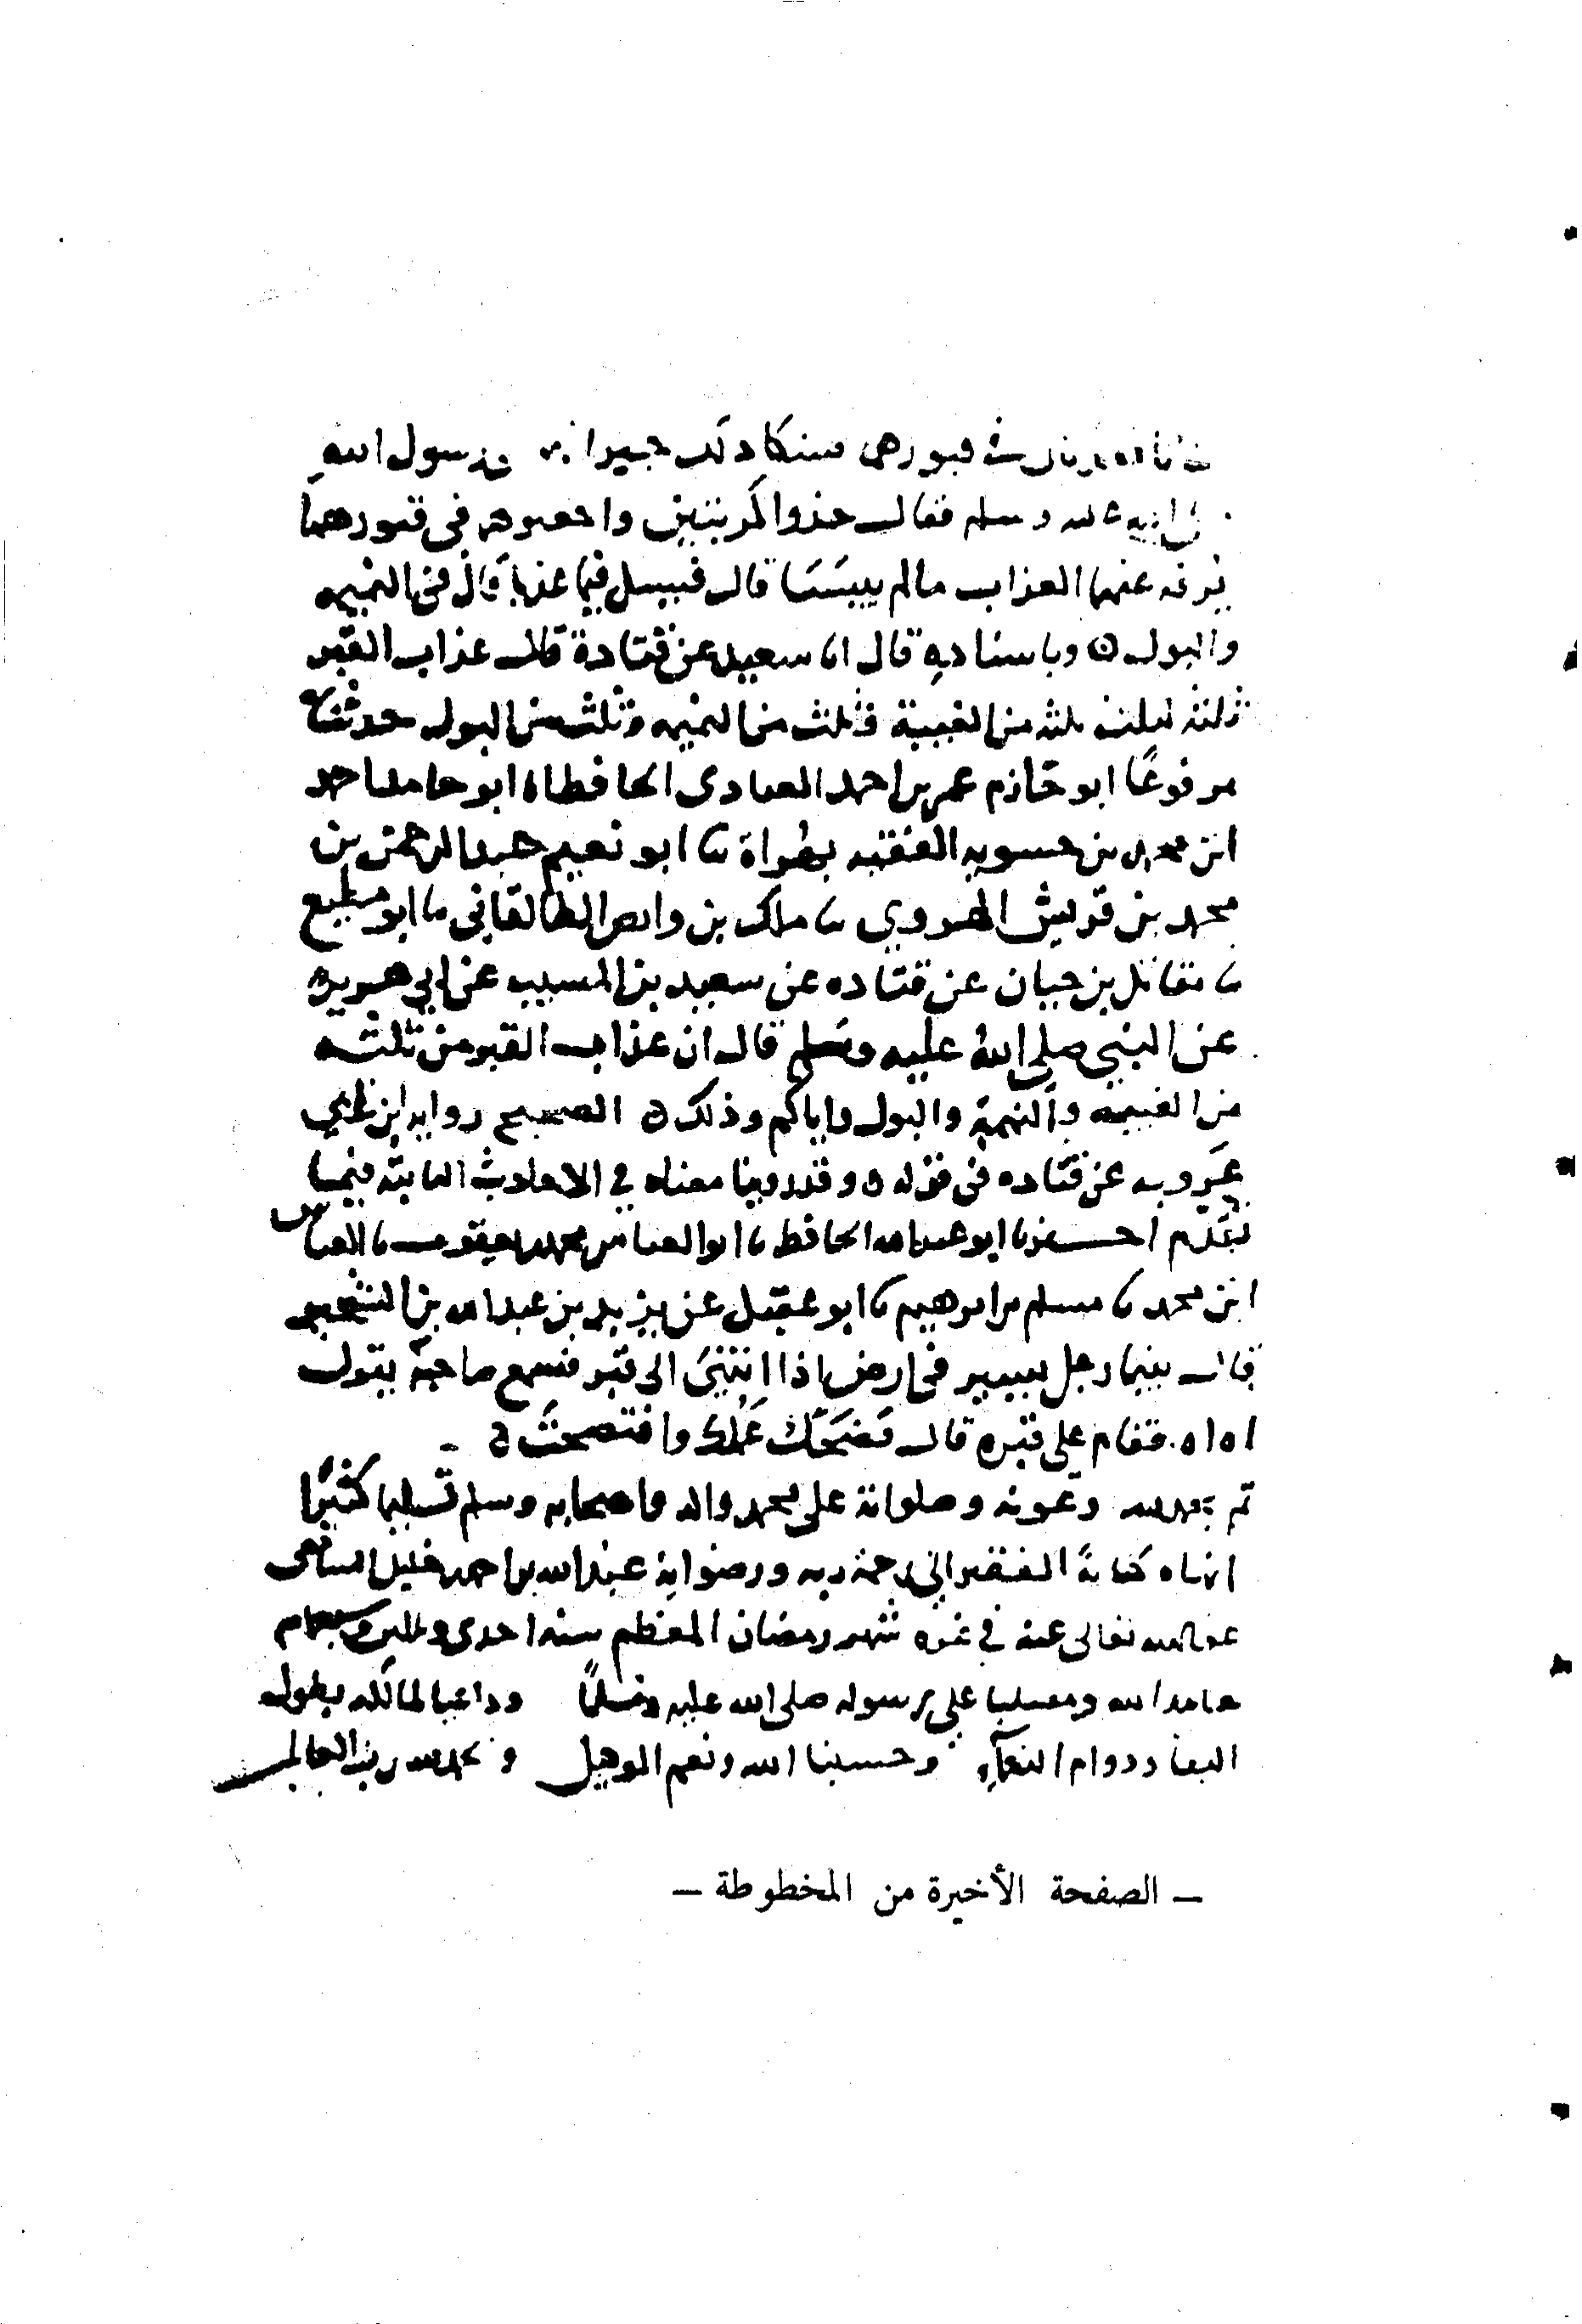 في قبورهما رسول الله
عليه وسلم فقال خذوا في قبورهما
يرفه عنهما العذاب مالم ييبسا قال فبيل فيما عذبا قال في النميمه
والبول وباسناده قال انا سعيد عن قتادة قال عذاب القبر
ثلثه اثلث ثلثه من الغيبة وثلث من النميمه وثلث من البول حدثناه
مرفوعًا ابو حازم عمر بن احمد العبادى الحافظ انا ابو حامد احمد
ابن محمد بن حسويه الفقيه بهراة ثنا ابو نعيم عبد الرحمن بن
محمد بن قريش الهروي ثنا ملك بن الطالقاني ثنا ابو مطيع
ثنا مقاتل بن حيان عن قتاده عن سعيد بن المسيب عن ابي هريره
عن النبي صلى الله عليه وسلم قال ان عذاب القبر من ثلثه
من الغيبه والنميمة والبول واياكم وذلك الصحيح روايه ابن ابي
عروبه عن قتاده في قوله وقد روينا معناه في الاحاديث الثابته فيما
تقدم اخبرنا ابو عبد الله الحافظ ثنا ابو العباس محمد بن يعقوب ثنا العباس
ابن محمد ثنا مسلم بن ابرهيم ثنا ابو عقيل عن يزيد بن عبد الله بن الشخير
قال بينما رجل يسير في ارض اذا انتهى الى قبر فسمع صاحبه يقول
اه اه فقام على قبره قال فضحك عملك وافتضحت
تم بحمد الله وعونه وصلواته على محمد واله واصحابه وسلم تسليما كثيرًا
انهاه كتابةً الفقير الى رحمة ربه ورضوانه عبد الله بن احمد خليل الشافعى
عفا الله تعالى عنه في غره شهر رمضان المعظم سنه احدى
حامدا لله ومصليا على رسوله صلى الله عليه وسلمًا وداعيا لمالكه بطول
البقا ودوام النعمآء وحسبنا الله ونعم الوكيل والحمد لله رب العالمين
– الصفحة الأخيرة من المخطوطة –